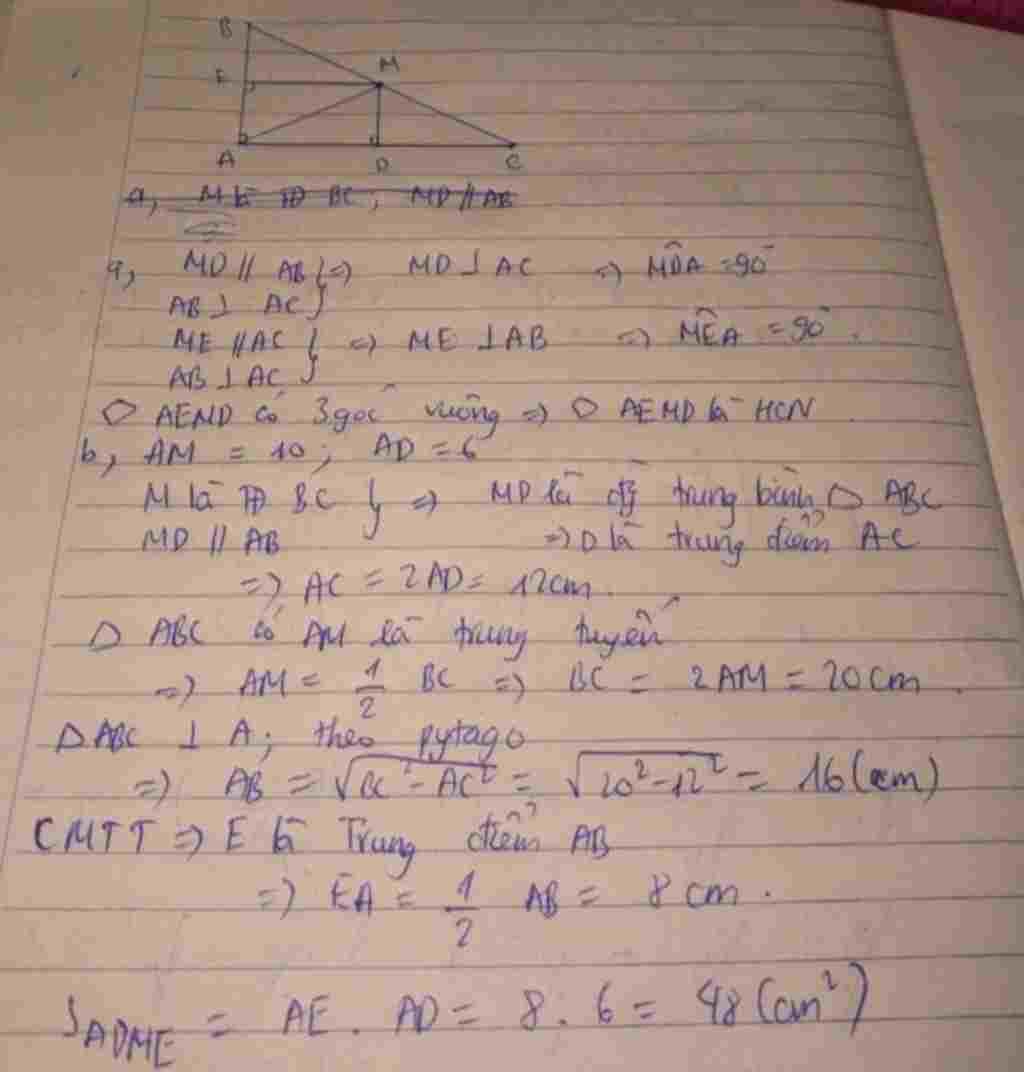 B
M
E
A D C
a, M là TĐ BC; MD // AB
a, MD // AB } => MD ⊥ AC => MD̂A = 90°
AB ⊥ AC
ME // AC } => ME ⊥ AB => MÊA = 90°.
AB ⊥ AC
◇ AEMD có 3 góc vuông => ◇ AEMD là HCN
b, AM = 10; AD = 6
M là TĐ BC } => MD là đg trung bình △ ABC
MD // AB => D là trung điểm AC
=> AC = 2AD = 12cm.
△ ABC có AM là trung tuyến
=> AM = 1/2 BC => BC = 2AM = 20cm.
△ABC ⊥ A; theo pytago
=> AB = √BC² - AC² = √20² - 12² = 16(cm)
CMTT => E là Trung điểm AB
=> EA = 1/2 AB = 8cm.
S ADME = AE. AD = 8. 6 = 48 (cm²)